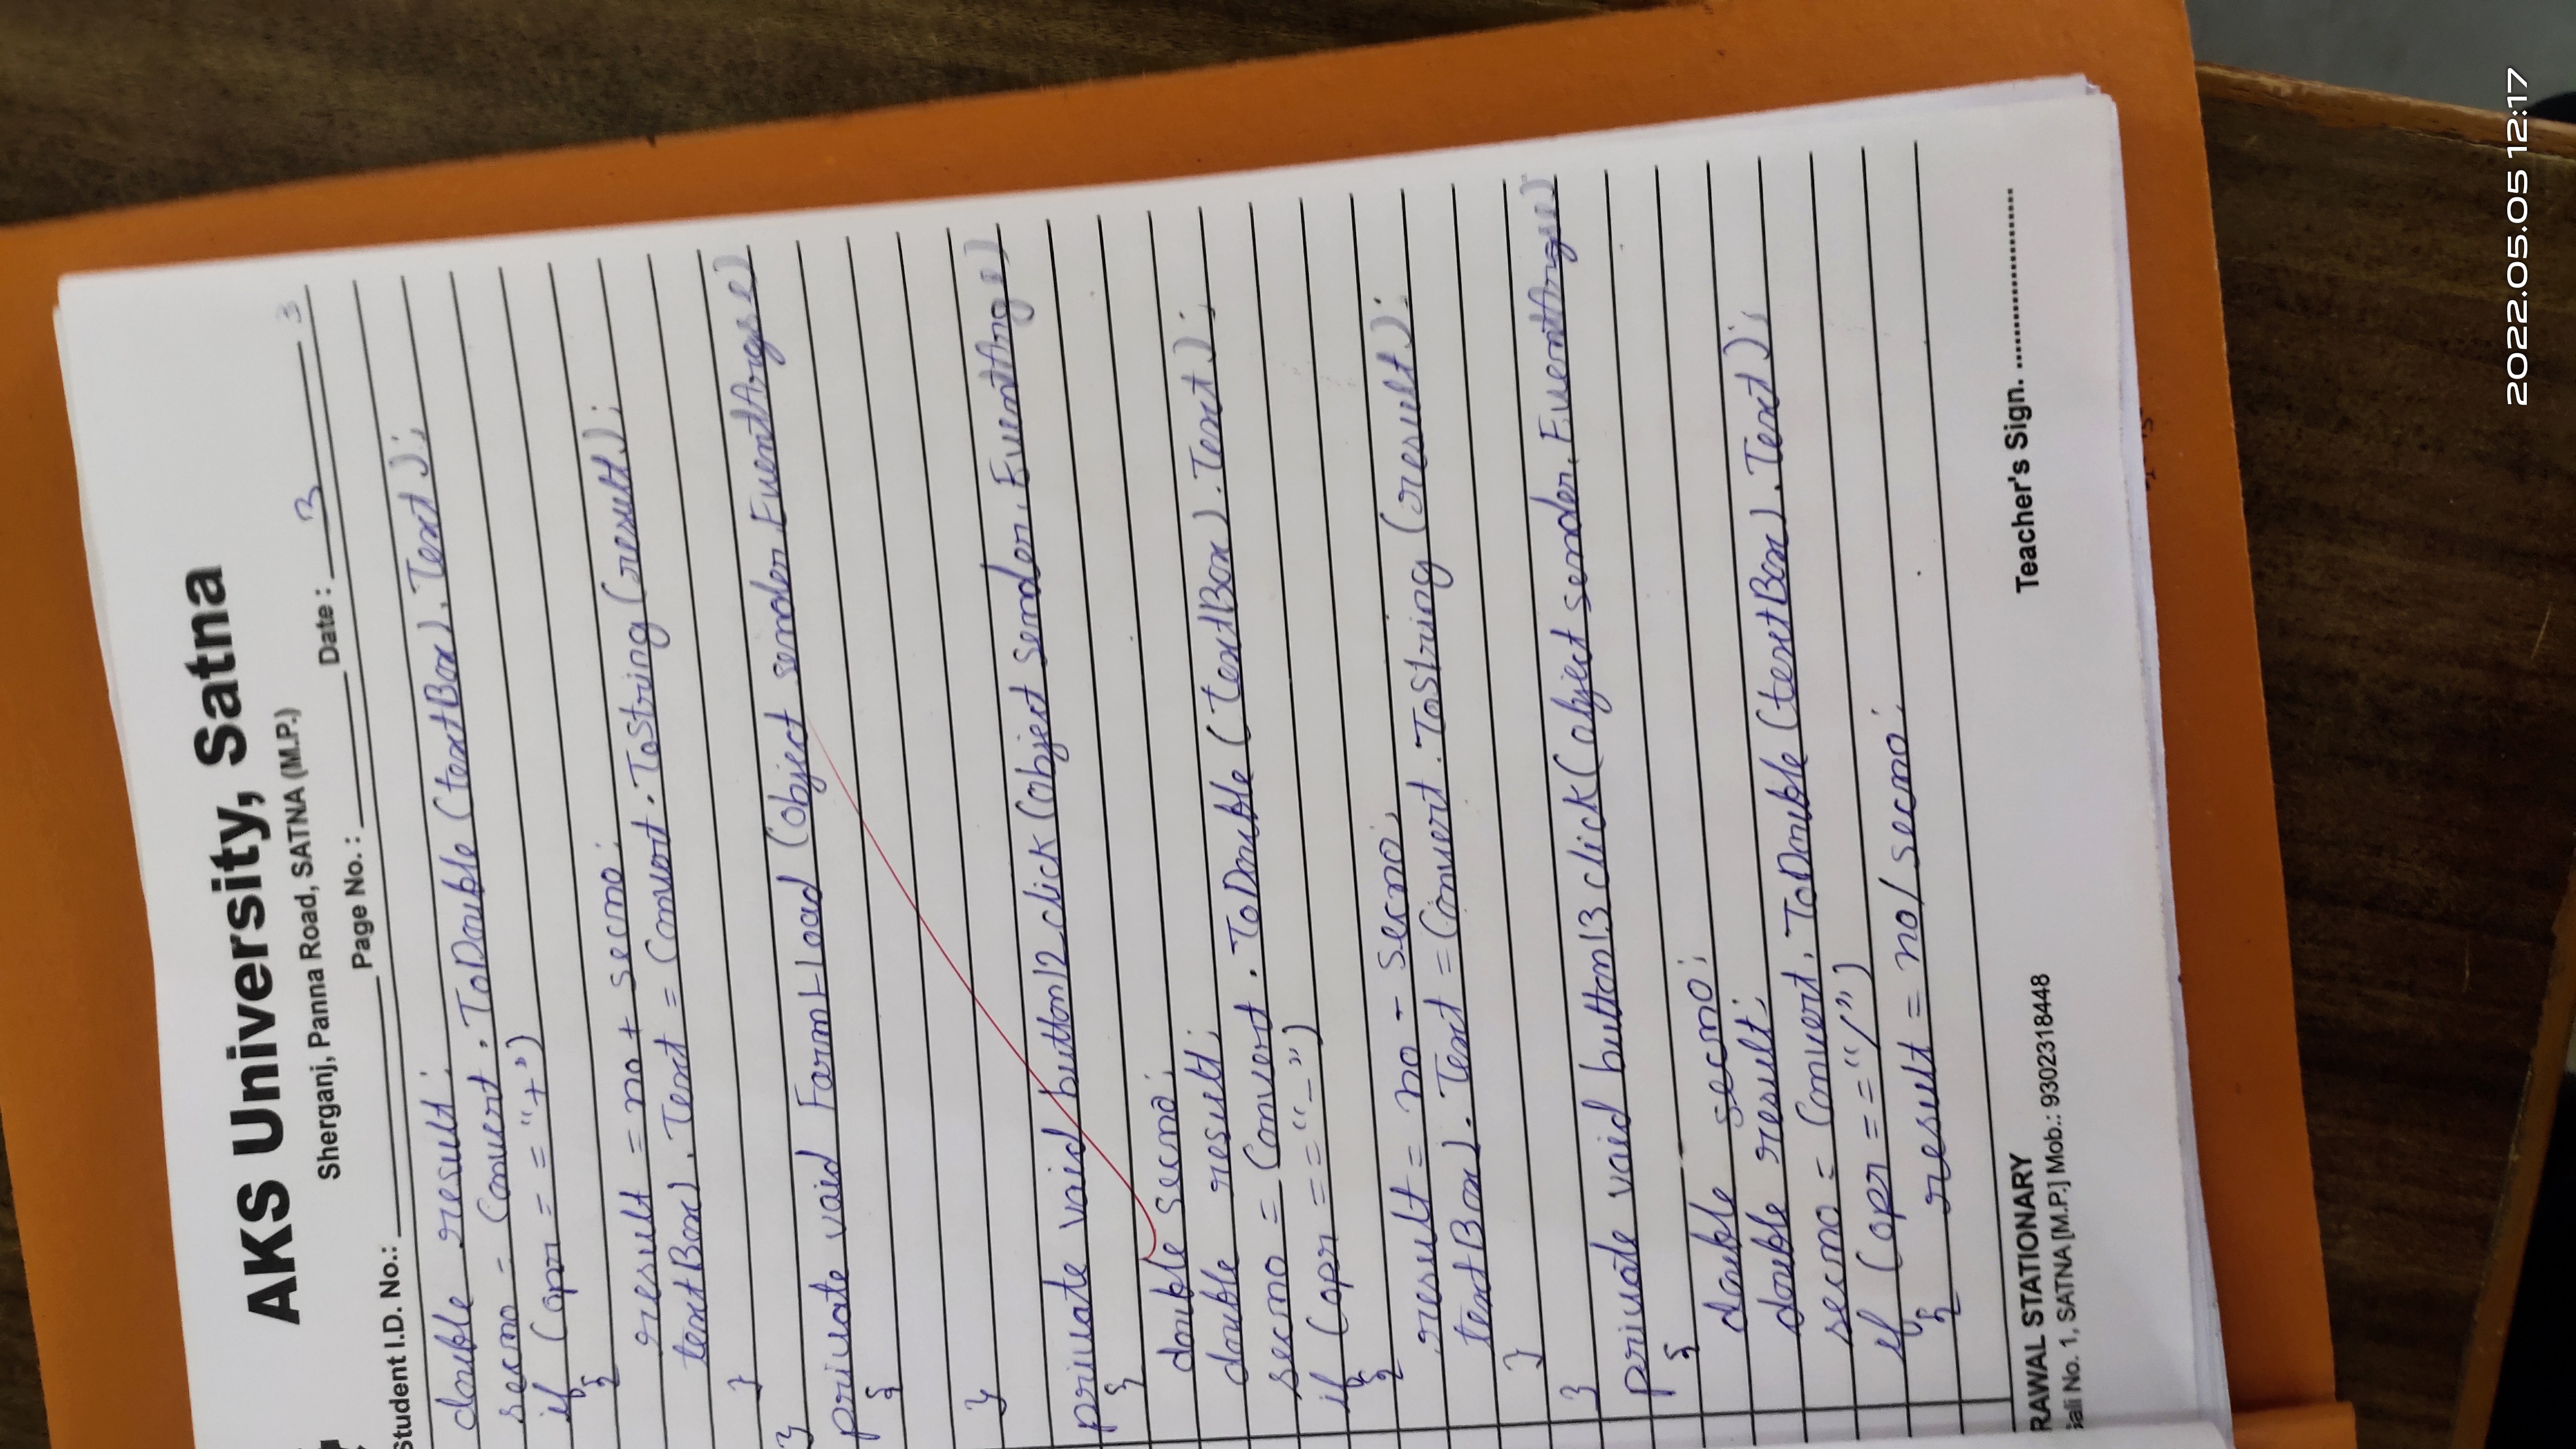 AKS University, Satna
Sherganj, Panna Road, SATNA (M.P.)
Student I.D. No.: Page No. : Date : 3 3
double result;
secno = Convert . ToDouble (textBox1. Text );
if (opr = = "+")
{
result = no + secno;
textBox1. Text = Convert . ToString (result);
}
}
private void Form1_load (object sender, EventArgs e)
{
}
private void button12_click (object sender, EventArgs e)
{
double secno;
double result;
secno = Convert . ToDouble (textBox1. Text );
if (opr == "-")
{
result = no - secno;
textBox1. Text = Convert . ToString (result);
}
}
private void button13 click (object sender, EventArgs e)
{
double secno;
double result;
secno = Convert . ToDouble (textBox1. Text );
if (opr == "/")
{ result = no / secno;
RAWAL STATIONARY
Gali No. 1, SATNA [M.P.] Mob.: 9302318448
Teacher's Sign. ........................
2022.05.05 12:17